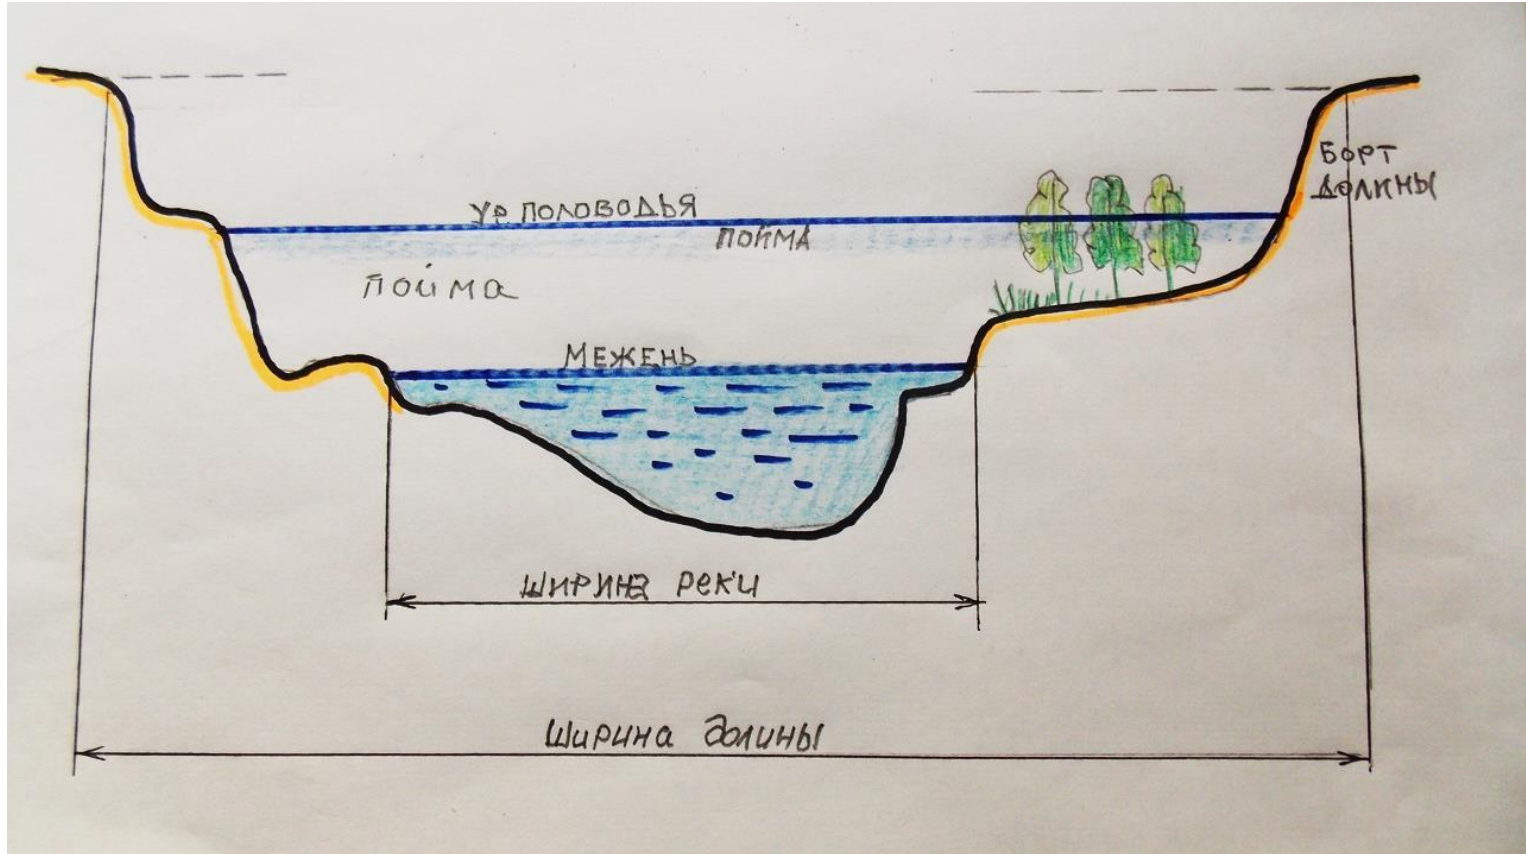 БОРТ
ДОЛИНЫ
УР ПОЛОВОДЬЯ
ПОЙМА
пойма
МЕЖЕНЬ
ширина реки
ширина долины